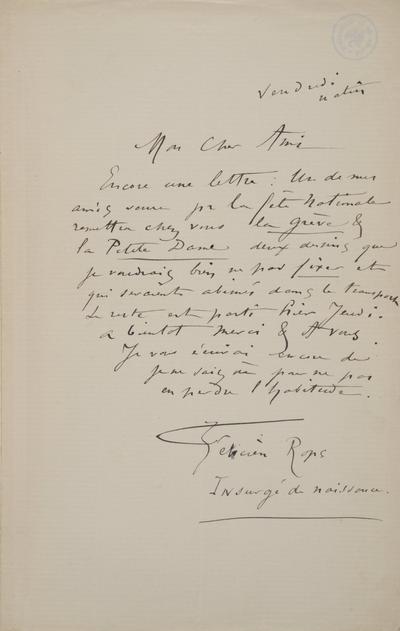 Vendredi
matin
Mon Cher Ami
Encore une lettre : Un de mes
amis venu pr la fête Nationale
remettra chez vous la Grève &
la Petite Dame deux dessins que
je voudrais bien ne pas fixer et
qui seraient abimés dans le transport
Le reste est parti hier Jeudi.
a bientot merci & A vous
Je vous écrirai encore de
je ne sais où pour ne pas
en perdre l'habitude.
Félicien Rops
Insurgé de naissance.